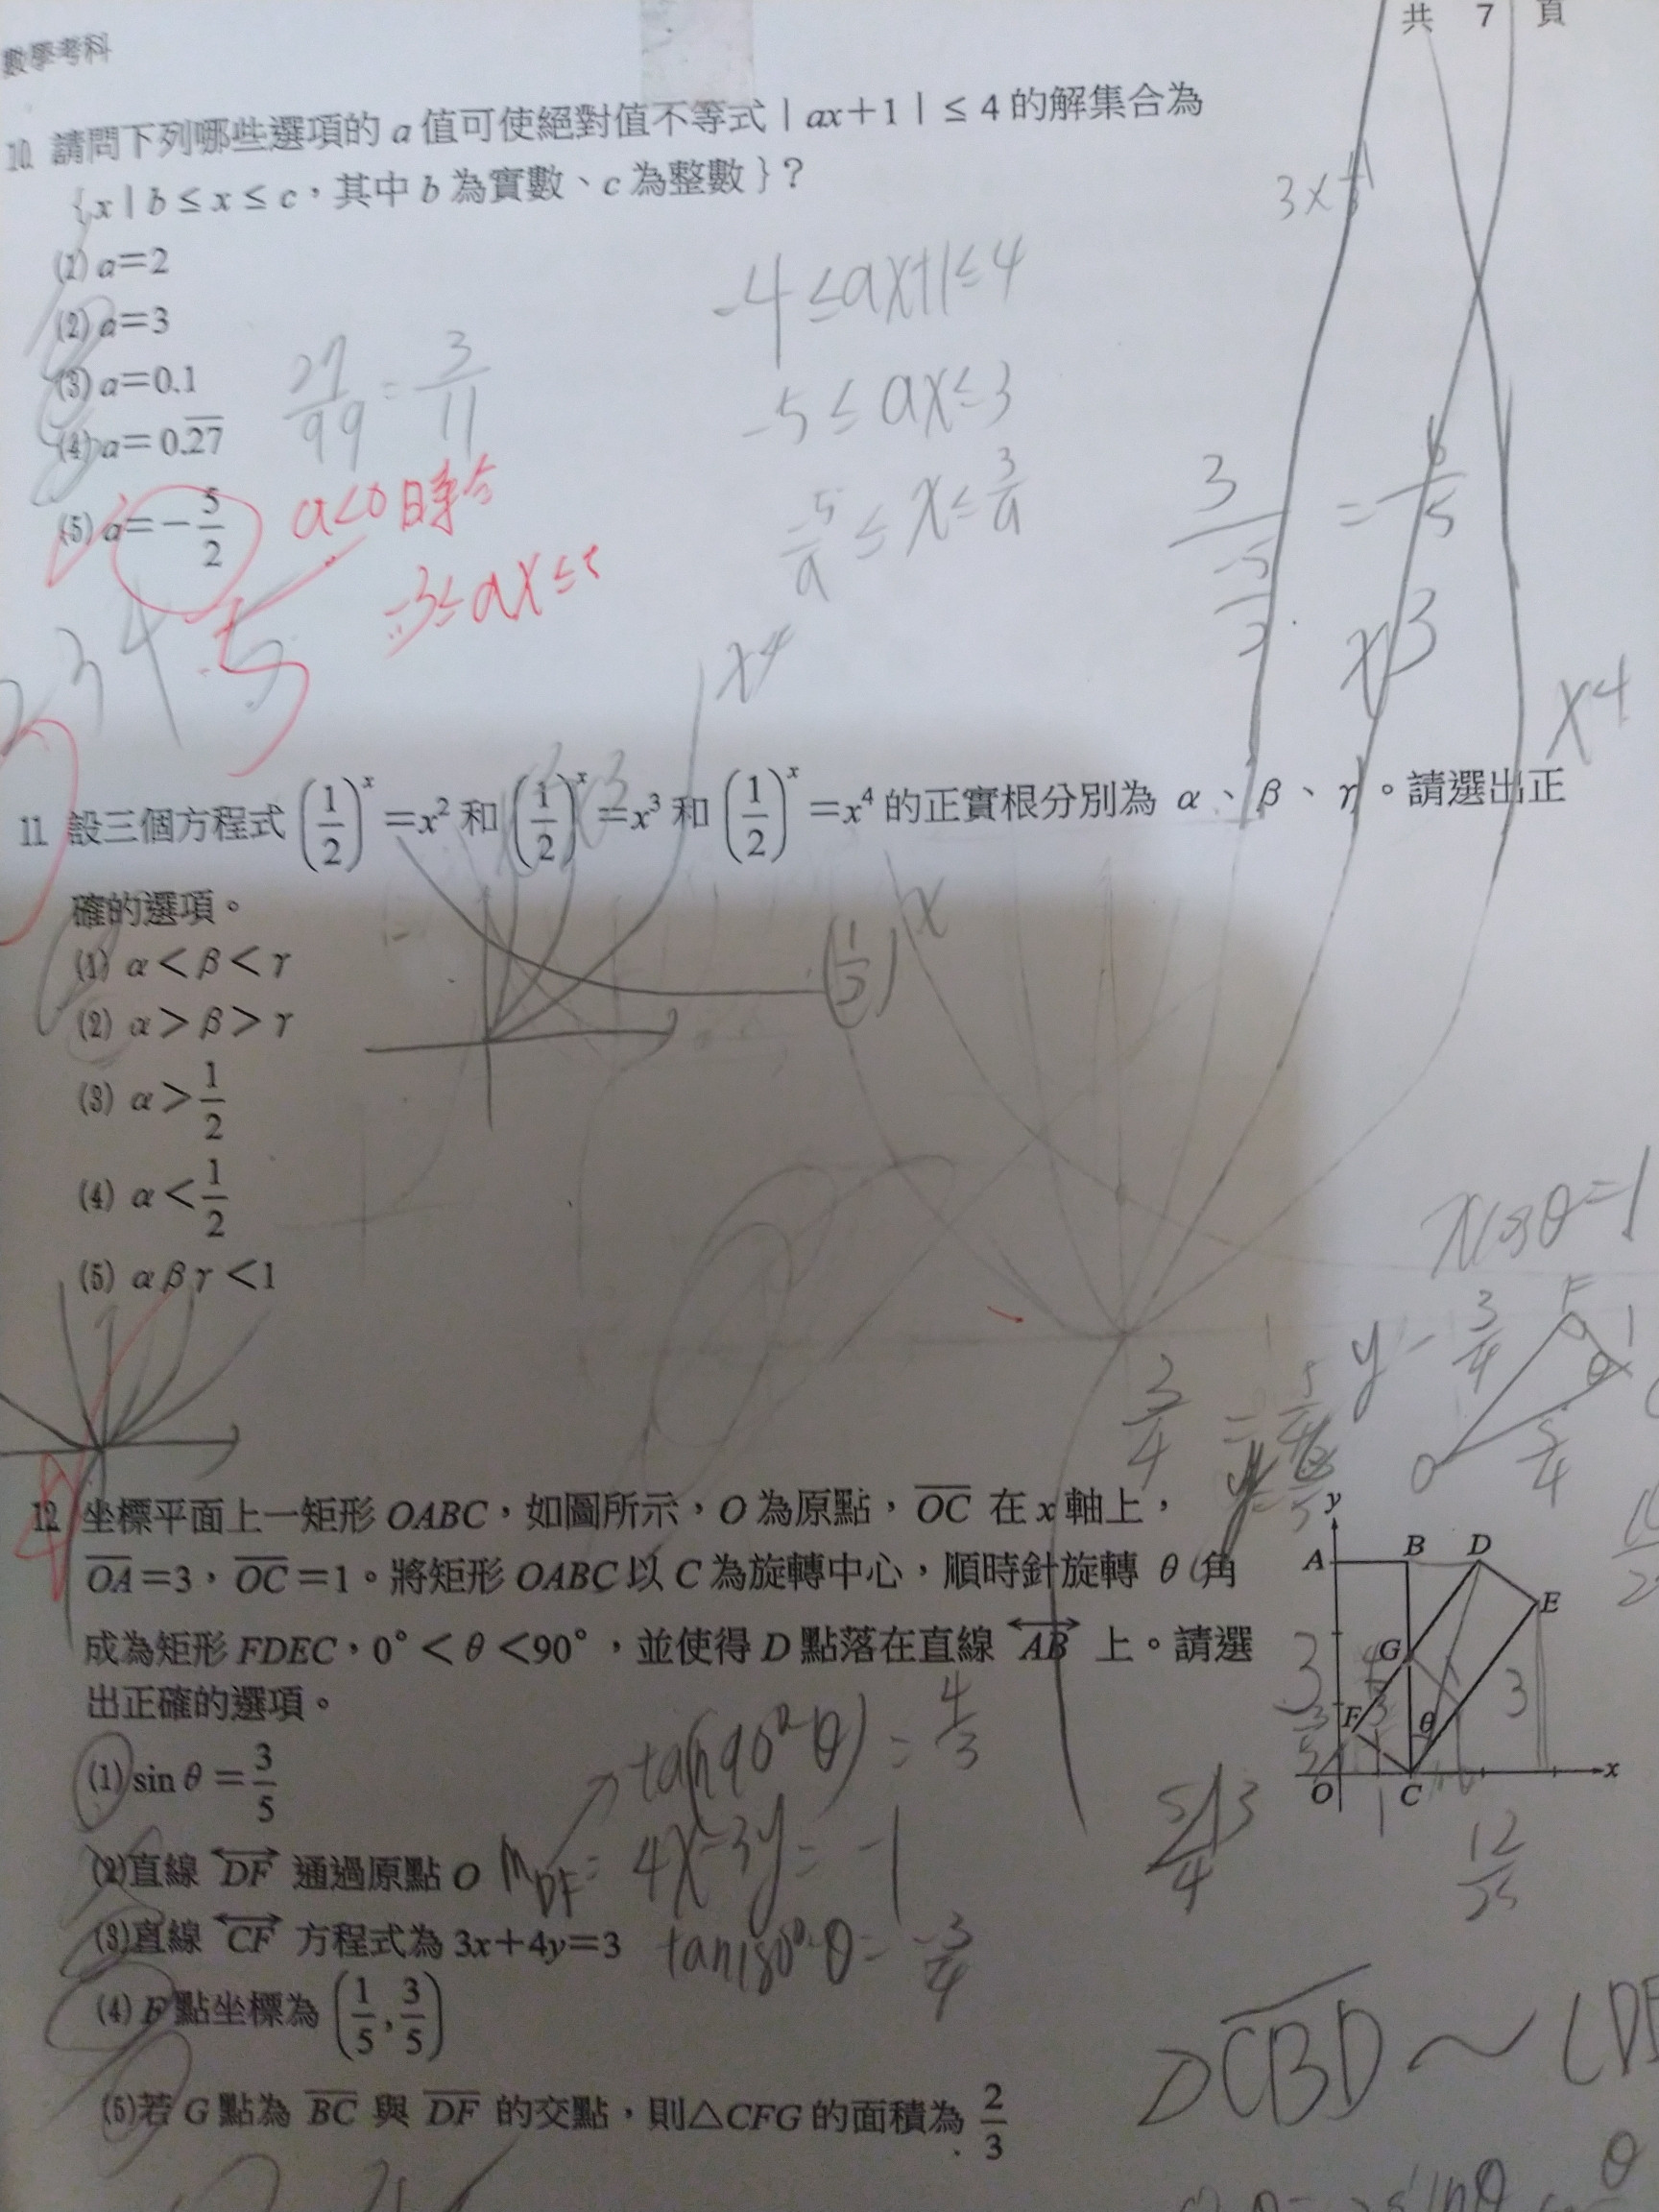 共 7 頁
數學考科
10. 請問下列哪些選項的 a 值可使絕對值不等式 | ax+1 | ≤ 4 的解集合為
{ x | b ≤ x ≤ c,其中 b 為實數、c 為整數 }?
(1) a=2
(2) a=3
(3) a=0.1
(4) a=0.\overline{27}
(5) a=-\frac{5}{2}
27/99 = 3/11
-4 ≤ ax+1 ≤ 4
-5 ≤ ax ≤ 3
-5/a ≤ x ≤ 3/a
a<0 時
x³
x⁴
x⁴
11. 設三個方程式 (1/2)^x = x² 和 (1/2)^x = x³ 和 (1/2)^x = x⁴ 的正實根分別為 α、β、γ。請選出正
確的選項。
(1) α<β<γ
(2) α>β>γ
(3) α>1/2
(4) α<1/2
(5) αβγ<1
12. 坐標平面上一矩形 OABC,如圖所示,O 為原點,\overline{OC} 在 x 軸上,
\overline{OA}=3,\overline{OC}=1。將矩形 OABC 以 C 為旋轉中心,順時針旋轉 θ 角
成為矩形 FDEC,0°<θ<90°,並使得 D 點落在直線 \overleftrightarrow{AB} 上。請選
出正確的選項。
(1) sin θ = 3/5
(2)直線 \overleftrightarrow{DF} 通過原點 O
(3)直線 \overleftrightarrow{CF} 方程式為 3x+4y=3
(4) F 點坐標為 (1/5, 3/5)
(5)若 G 點為 \overline{BC} 與 \overline{DF} 的交點,則△CFG 的面積為 2/3
y
A
B
D
E
G
F
θ
O
C
x
tan(90°-θ) = 4/3
4x-3y = -1
tan180°-θ = -3/4
12/25